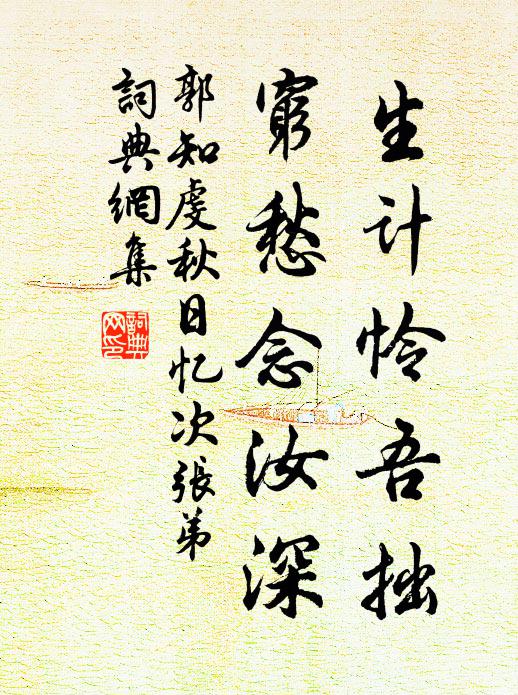 生计怜吾拙
窮愁念汝深
郭知虔秋日忆次張弟
詞典網集
詞典网印